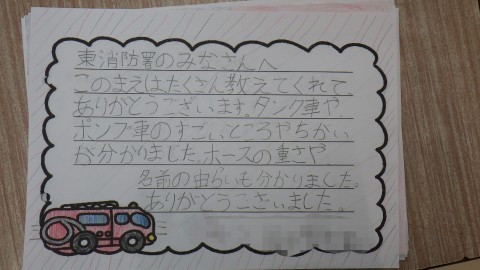 東消防署のみなさんへ
このまえはたくさん教えてくれて
ありがとうございます。タンク車や、
ポンプ車のすごいところやちがい
が分かりました。ホースの重さや
名前の由らいも分かりました。
ありがとうございました。